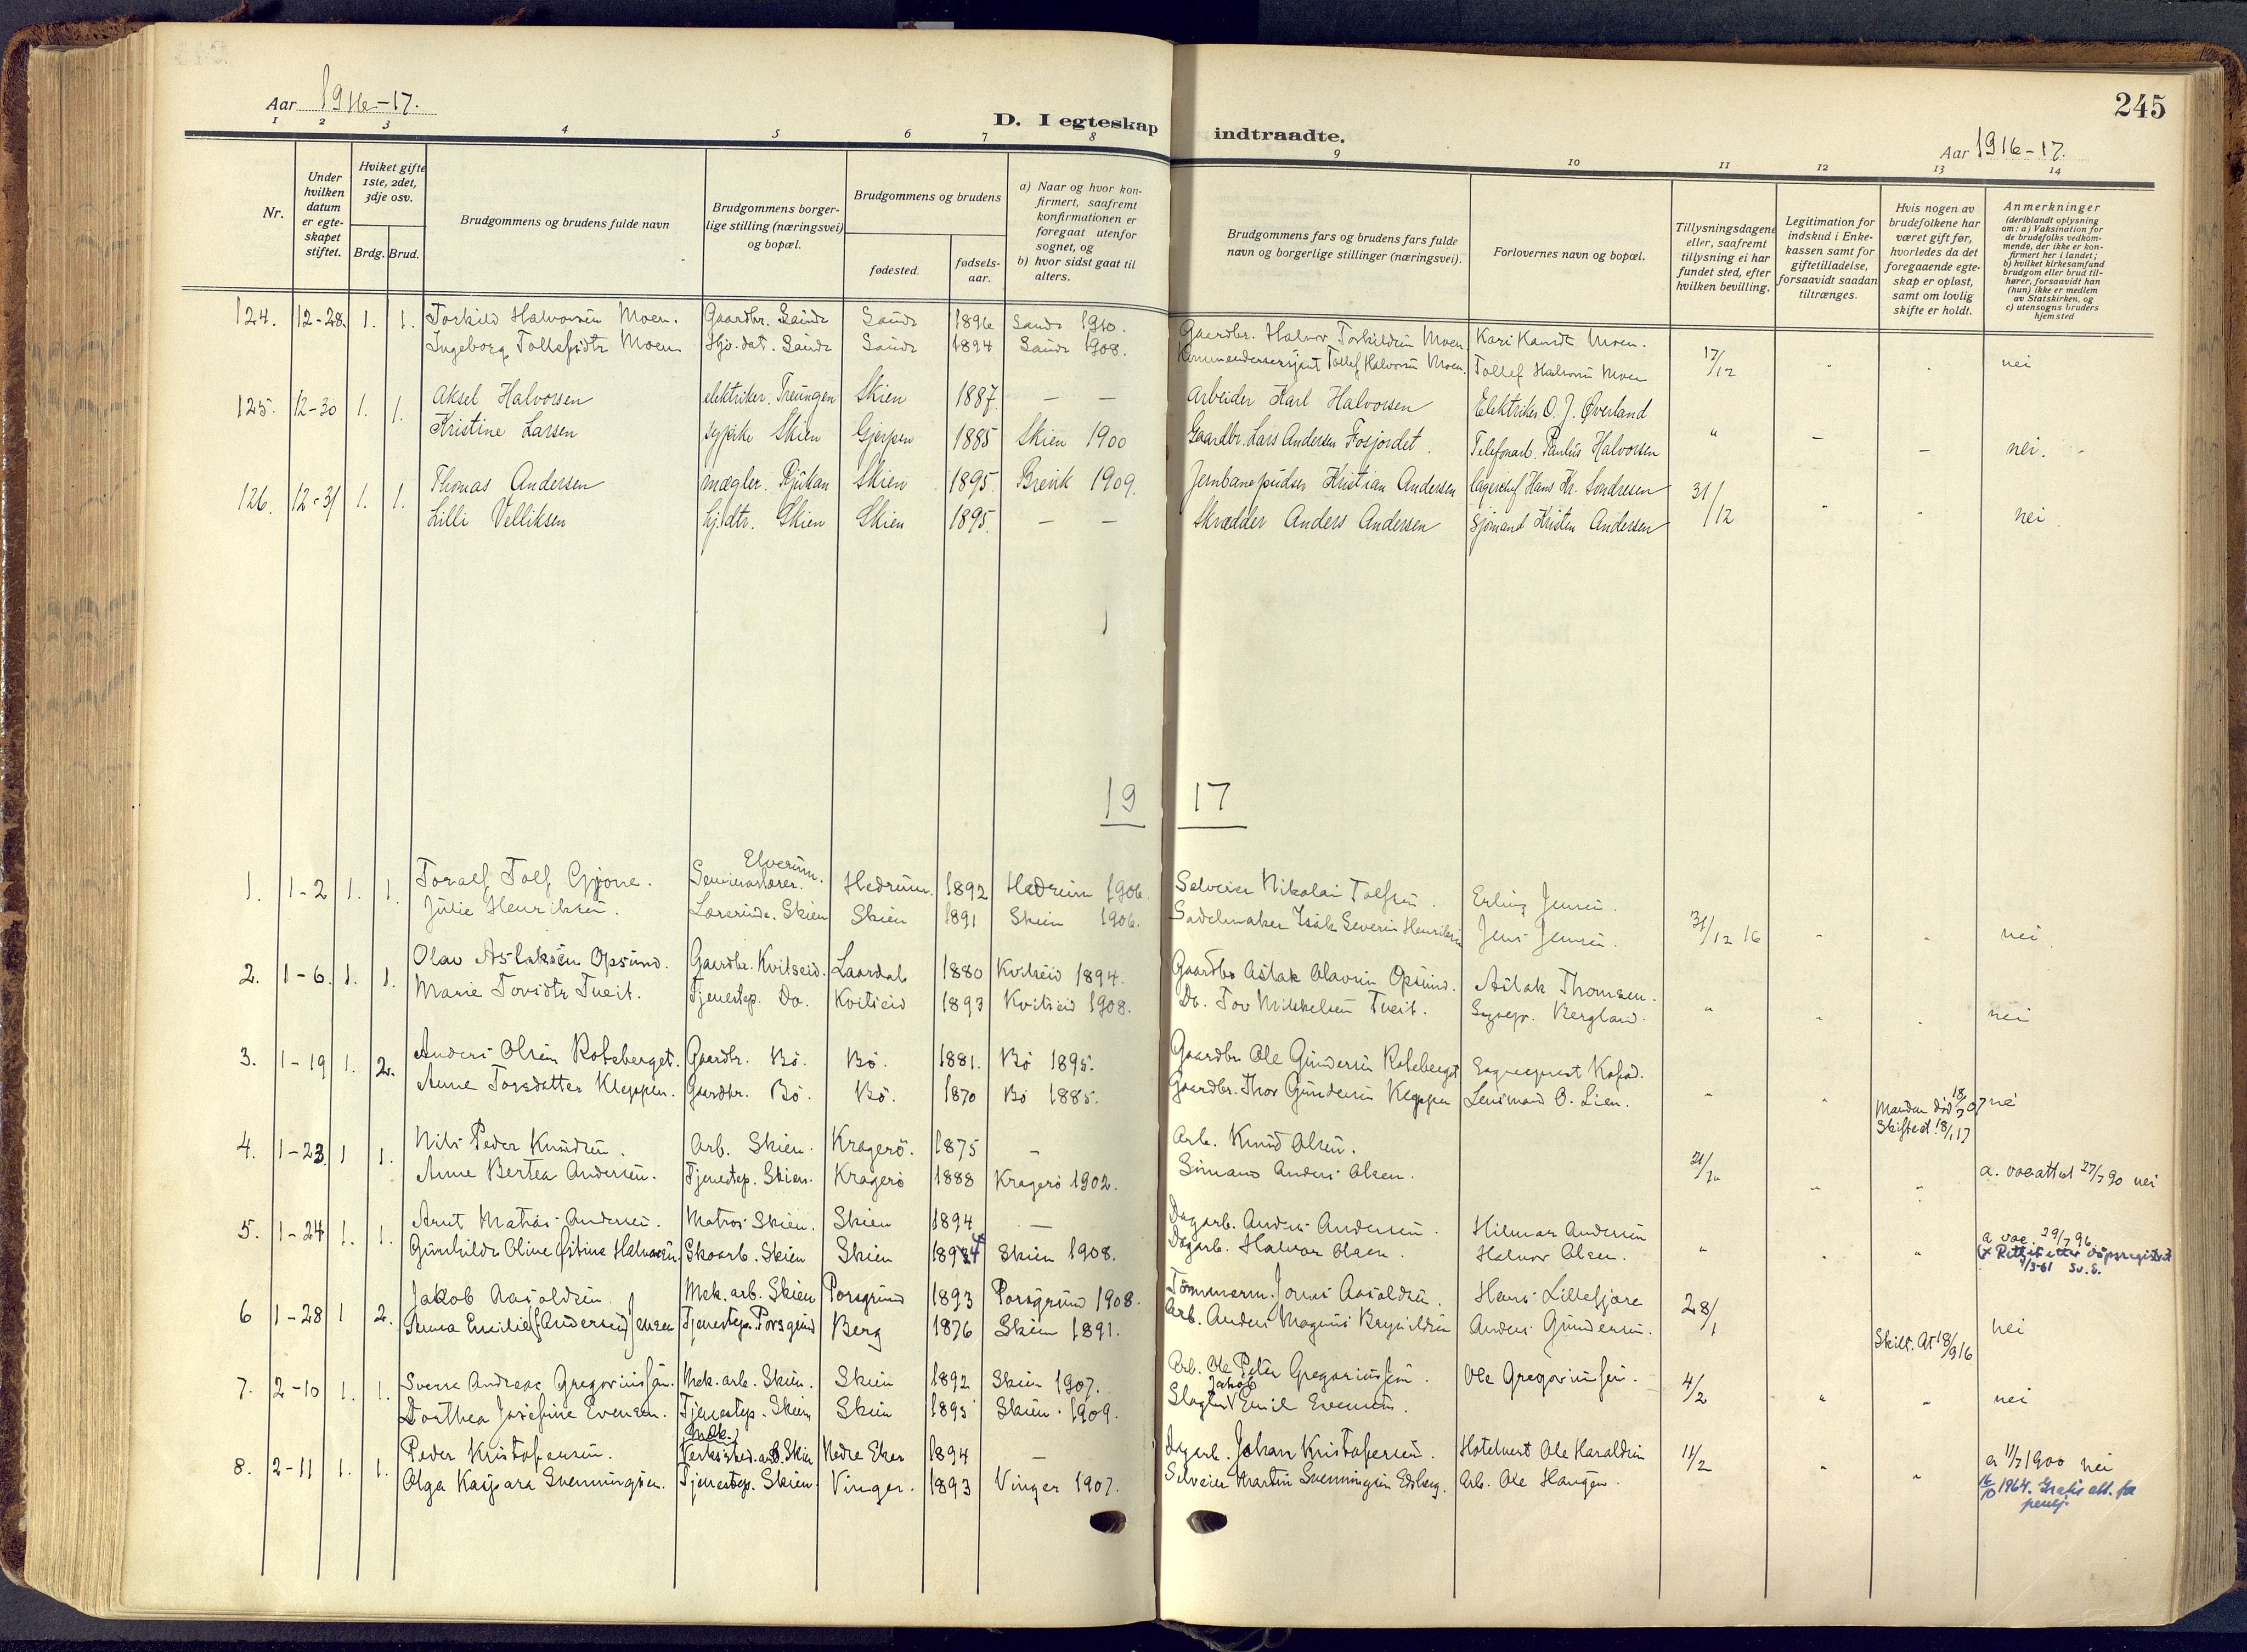 Aar 1916-17.
D. I egteskap indtraadte.
245
Aar 1916-17.
1 2 3 4 5 6 7 8 9 10 11 12 13 14
Nr.
Under hvilken datum er egte-skapet stiftet.
Hviket gifte 1ste, 2det, 3dje osv.
Brdg. Brud.
Brudgommens og brudens fulde navn
Brudgommens borger-lige stilling (næringsvei) og bopæl.
Brudgommens og brudens
fødested.
fødsels-aar.
a) Naar og hvor kon-firmert, saafremt konfirmationen er foregaat utenfor sognet, og
b) hvor sidst gaat til alters.
Brudgommens fars og brudens fars fulde navn og borgerlige stillinger (næringsvei).
Forlovernes navn og bopæl.
Tillysningsdagene eller, saafremt tillysning ei har fundet sted, efter hvilken bevilling.
Legitimation for indskud i Enke-kassen samt for giftetilladelse, forsaavidt saadan tiltrænges.
Hvis nogen av brudefolkene har været gift før, hvorledes da det foregaaende egte-skap er opløst, samt om lovlig skifte er holdt.
Anmerkninger
(deriblandt oplysning om: a) Vaksination for de brudefolks vedkom-mende, der ikke er kon-firmert her i landet;
b) hvilket kirkesamfund brudgom eller brud til-hører, forsaavidt han (hun) ikke er medlem av Statskirken, og
c) utensogns bruders hjemsted
124. 12-28. 1. 1. Torkild Halvorsen Moen. Gaardbr. Sande Sande 1896 Sande 1910. Gaardbr. Halvor Torkildsen Moen Moen. 17/12 " " nei
Ingeborg Tollefsdtr Moen Sande Sande 1894 Sande 1908. Tollef Halvorsen Moen. Tollef Halvorsen Moen
125. 12-30 1. 1. Aksel Halvorsen elektriker. Treungen Skien 1887. — — Arbeider Karl Halvorsen Elektriker O. J. Øverland " — — nei.
Kristine Larsen sypike Skien Gjerpen 1885 Skien 1900 Gaardbr. Lars Andersen Fosjordet. Telefonarb. Paulus Halvorsen
126. 12-31 1. 1. Thomas Andersen mægler. Rjukan Skien 1895. Brevik 1909. Jernbanepudser Kristian Andersen lagerchef Hans Kr. Sondresen 31/12 " " nei
Lilli Velliksen hj.dtr. Skien Skien 1895. — — Skrædder Anders Andersen Sjømand Kristen Andersen
1917
1. 1-2 1. 1. Toralf Tolf Gjone. Seminarlærer. Elverum. Hedrum. 1892 Hedrum 1906. Selveier Nikolai Tolfsen. Erling Jensen. 31/12 16 " " nei.
Julie Henriksen. Lærerinde. Skien Skien 1891 Skien 1906. Sadelmaker Isak Severin Henriksen Jens Jensen.
2. 1-6. 1. 1. Olav Aslaksen Opsund. Gaardbr. Kvitseid. Laardal 1880 Kvitseid 1894. Gaardbr Aslak Olavsen Opsund. Aslak Thomsen. " " " nei
Marie Tovsdtr Tveit. Tjenestep. Do. Kvitseid 1893 Kvitseid 1908. Do. Tov Mikkelsen Tveit. Sognepr. Bergland.
3. 1-19 1. 2. Anders Olsen Roteberget. Gaardbr. Bø. Bø. 1881. Bø 1895. Gaardbr. Ole Gundersen Roteberget Sogneprest Kofod. " " Manden død 18/3 07 Skifteat. 18/1 17 nei
Anne Torsdatter Kleppen. Gaardbr. Bø. Bø. 1870 Bø 1885. Gaardbr. Thor Gundersen Kleppen Lensmand O. Lien.
4. 1-23 1 1. Nils Peder Knudsen. Arb. Skien. Kragerö. 1875 — Arb. Knud Olsen. " " a. vacattest 27/7 90 nei
Anne Bertea Andersen. Tjenestep. Skien. Kragerö 1888 Kragerö 1902. Anders Olsen.
5. 1-24 1. 1. Arnt Matias Andersen. Matros Skien. Skien 1894 — Dagarb. Anders Andersen. Hilmar Andersen " " " a vac. 29/7 96.
Gunhilde Olive Halvorsen. Skoarb. Skien Skien 1894 Skien 1908. Dagarb. Halvor Olsen. Halvor Olsen. Rettet etter dåpsregistret
6 1-28 1 2. Jakob Aasoldsen. Mek. arb. Skien Porsgrund 1893 Porsgrund 1908. Tömmerm. Jonas Aasoldsen. Hans Lillefjære 28/1 Skilt. At 18/9 16 nei
Anna Emilie (Andersen) Jensen Tjenestep. Porsgrund Berg 1876 Skien 1891. Arb. Anders Magnus Brynildsen Anders Gundersen.
7. 2-10 1. 1. Sverre Andreas Gregoriussen. Mek. arb. Skien. Skien 1892 Skien 1907. Arb. Ole Peter Gregoriussen. Ole Gregoriussen. 4/2 " " nei
Dorthea Josefine Evensen. Tjenestep. Skien Skien 1895 Skien 1909. Slagter Jakob Emil Evensen.
8. 2-11 1. 1. Peder Kristofersen. Mek. Verksted.arb. Skien Nedre Eker 1894 — Dagarb. Johan Kristofersen. Hotelvert Ole Haraldsen 11/2 " " a 11/7 1900 nei
Olga Kaspara Svenningsen. Tjenestep. Skien. Vinger. 1893 Vinger 1907. Selveier Martin Svenningsen Edsberg. Arb. Ole Haugen. 16/10 1964. Gratis att. for pensj.